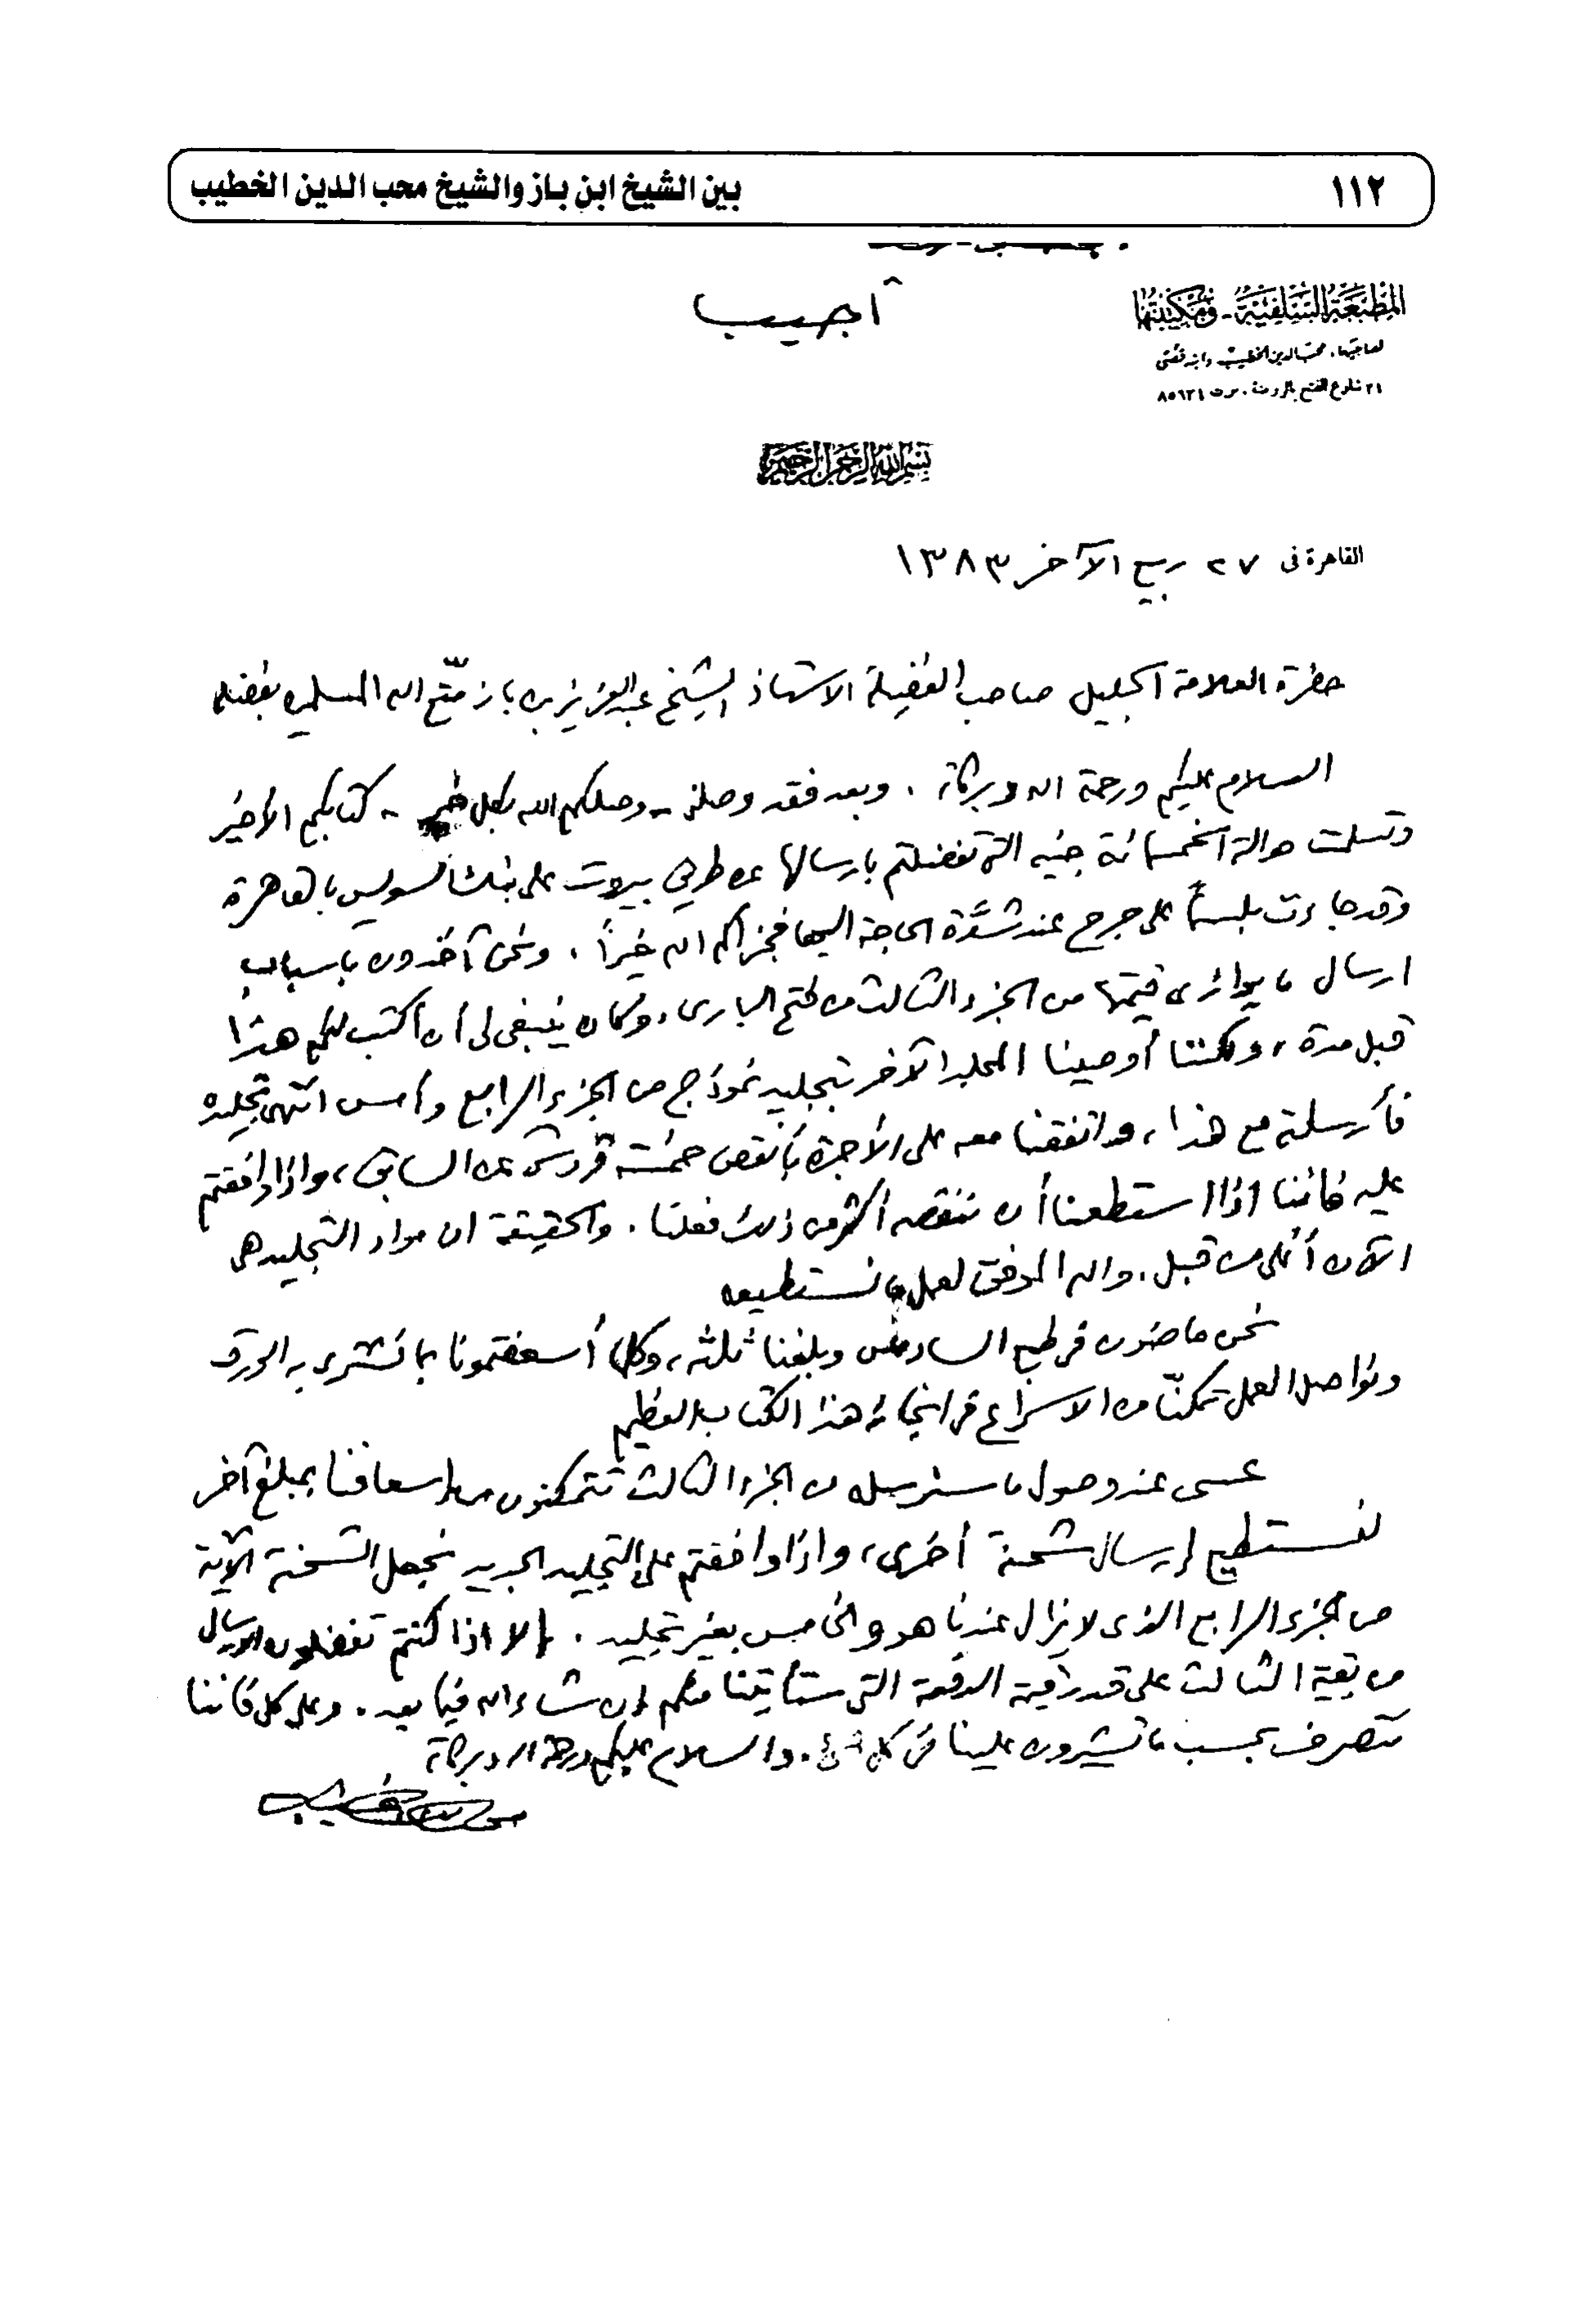 ١١٢
بين الشيخ ابن باز والشيخ محب الدين الخطيب
أجيب
المطبعة السلفية - ومكتبتها
لصاحبيها، محب الدين الخطيب وابنه قصي
٢١ شارع الفتح بالروضة، ت ٨٥٦٢١
بسم الله الرحمن الرحيم
القاهرة في ٢٧ ربيع الآخر ١٣٨٣
حضرة العلامة الجليل صاحب الفضيلة الاستاذ الشيخ عبد العزيز بن باز متّع الله المسلمين بفضله
السلام عليكم ورحمة الله وبركاته، وبعد فقد وصلني - وصلكم الله بكل خير - كتابكم الأخير
وتسلمت حوالة الخمسمائة جنيه التي تفضلتم بارسالها عن طريق بيروت على بنك السويس بالقاهرة
وقد جاءت بلسماً على جرح عند شدّة الحاجة اليها فجزاكم الله خيراً، ونحن آخذون بأسباب
ارسال ما يوازي قيمتها من الجزء الثالث من فتح الباري، وكان ينبغي لي أن أكتب لكم هذا
قبل مدة، ولكننا أوصينا المجلد الآخر بتجليد نموذج من الجزء الرابع وأمس انتهى تجليده
فأرسلته مع هذا، وقد اتفقنا معه على الأجرة بأنقص خمسة قروش عن السابق، واذا وافقتم
عليه فاننا اذا استطعنا أن ننقصه أكثر من ذلك فعلنا. والحقيقة ان مواد التجليد هي
الآن أغلى من قبل، والله الموفق لعمل ما نستطيعه
نحن ماضون في طبع السادس وبلغنا ثلثه، وكلما أسعفتمونا بما نشتري به الورق
ونواصل العمل تمكنّا من الاسراع في انجاز هذا الكتاب العظيم
عسى عند وصول ما سنرسله من الجزء الثالث تتمكنون من إسعافنا بمبلغ آخر
لنستطيع إرسال شحنة أخرى، واذا وافقتم على التجليد الجديد نجعل الشحنة الآتية
من الجزء الرابع الذي لا يزال عندنا هو والخامس بغير تجليد. إلا اذا كنتم تفضلون الارسال
من بقية الثالث على قدر قيمة الدفعة التي ستأتينا منكم إن شاء الله فيما بعد. وعلى كل فاننا
نتصرف بحسب ما تشيرون علينا في كل شيء. والسلام عليكم ورحمة الله وبركاته
محب الدين الخطيب